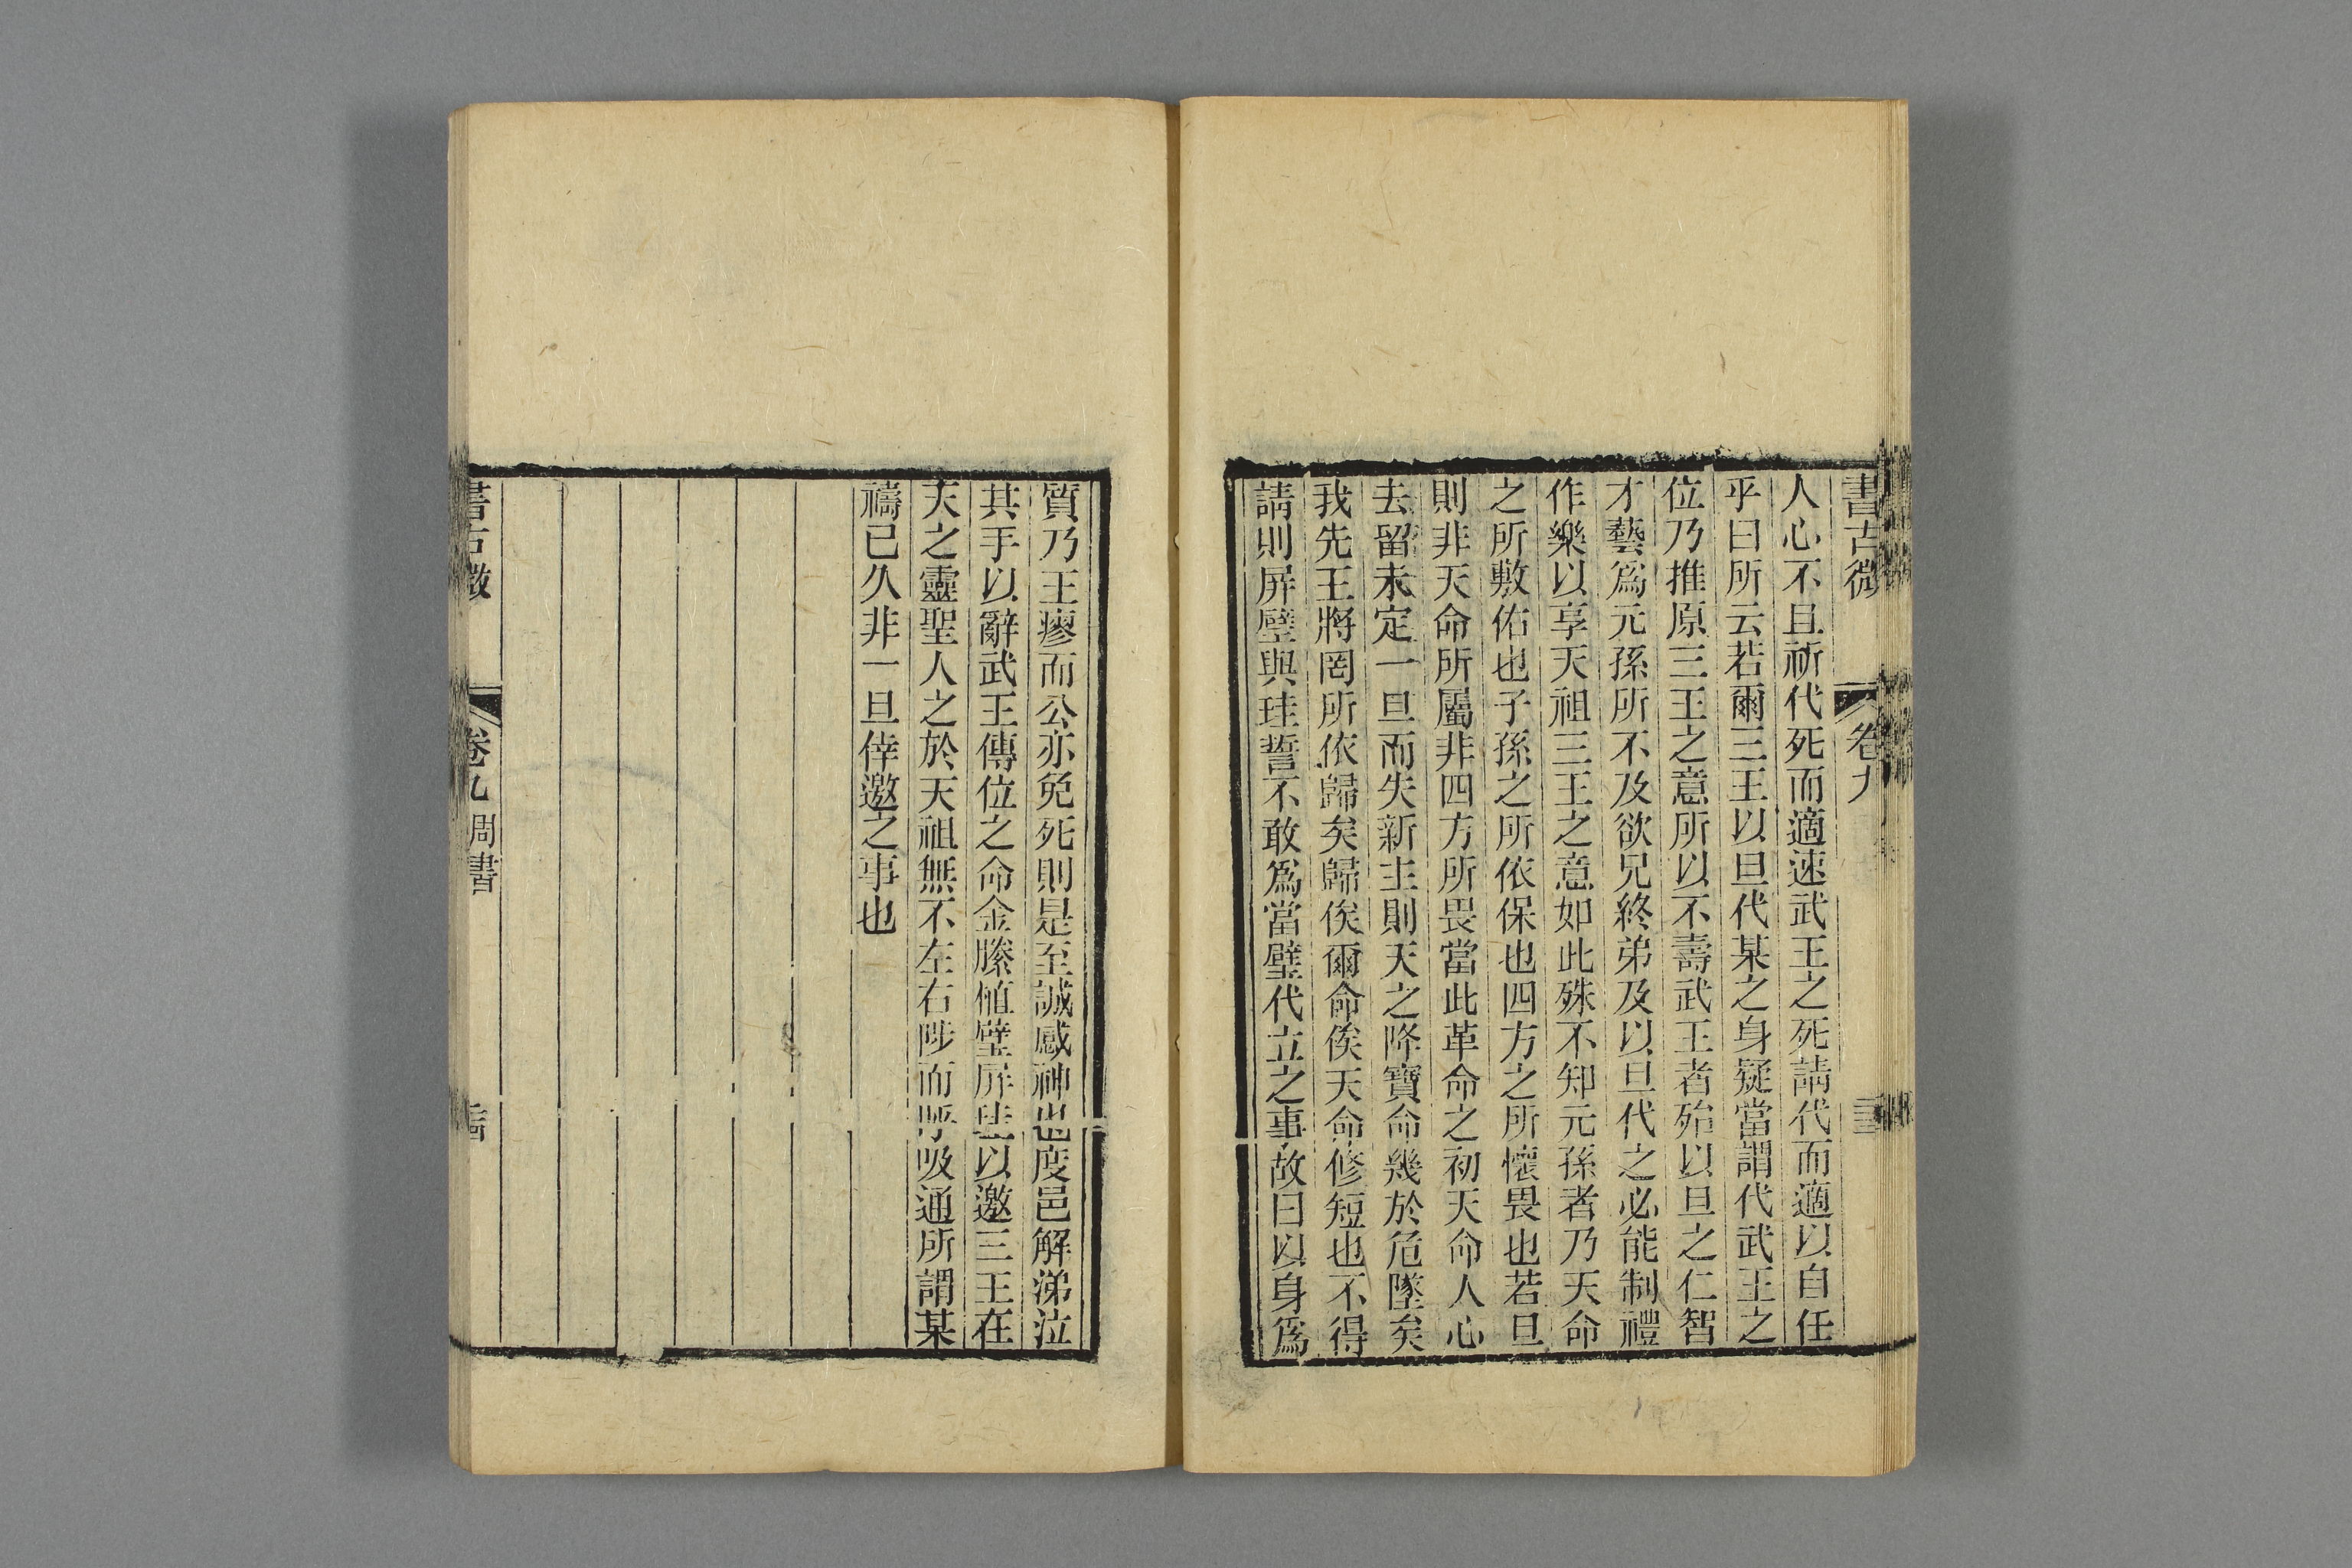 書古微 卷九
人心不且祈代死而適速武王之死請代而適以自任
乎曰所云若爾三王以旦代某之身疑當謂代武王之
位乃推原三王之意所以不壽武王者殆以旦之仁智
才藝爲元孫所不及欲兄終弟及以旦代之必能制禮
作樂以享天祖三王之意如此殊不知元孫者乃天命
之所敷佑也子孫之所依保也四方之所懷畏也若旦
則非天命所屬非四方所畏當此革命之初天命人心
去留未定一旦而失新主則天之降寶命幾於危墜矣
我先王將罔所依歸矣歸俟爾命俟天命修短也不得
請則屏璧與珪誓不敢爲當璧代立之事故曰以身爲
質乃王瘳而公亦免死則是至誠感神也度邑解涕泣
其手以辭武王傳位之命金縢植璧屏珪以邀三王在
天之靈聖人之於天祖無不左右陟而呼吸通所謂某
禱已久非一旦倖邀之事也
書古微 卷九 周書